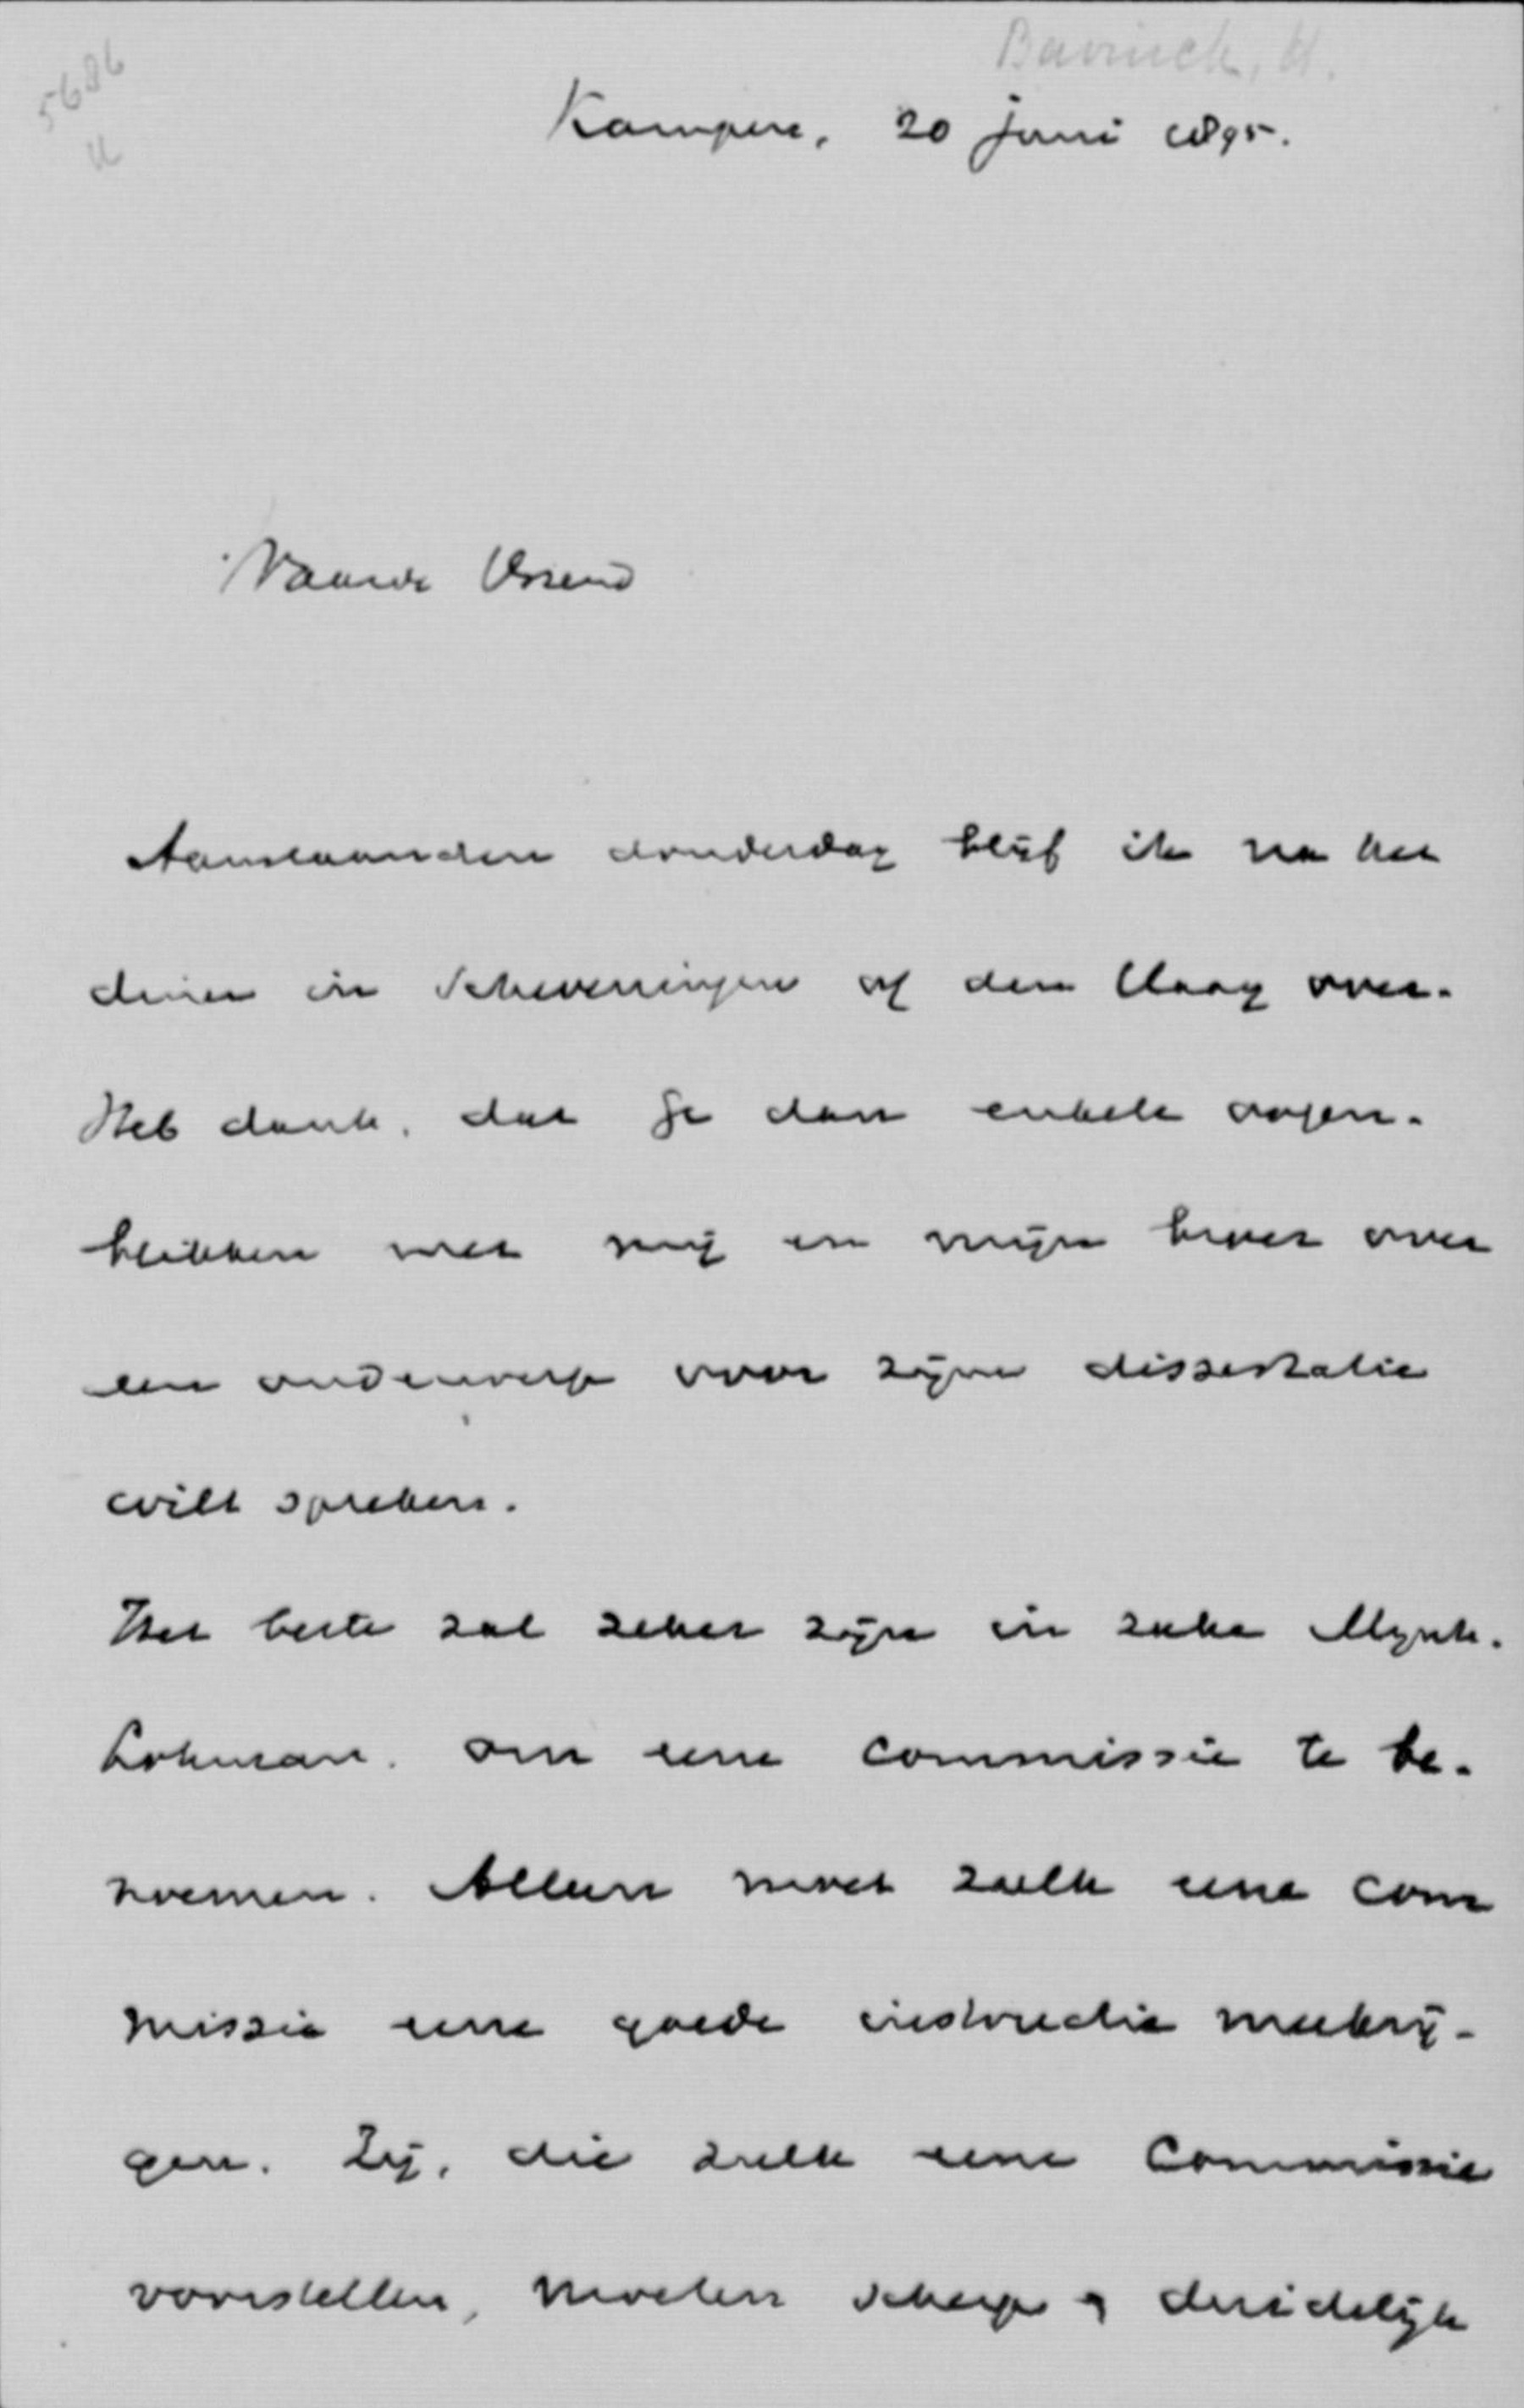 Bavinck, H.
5686
Kampen, 20 Juni 1895.
Waarde Vriend
Aanstaanden donderdag blijf ik na het
diner in Scheveningen of den Haag over.
Heb dank, dat ge dan enkele oogen-
blikken met mij en mijn broer over
een onderwerp voor zijne dissertatie
wilt spreken.
Het beste zal zeker zijn in zake Mynh.
Lohman, om eene commissie te be-
noemen. Alleen moet zulk eene com
missie eene goede instructie meekrij-
gen. Zij, die zulk eene Commissie
voorstellen, moeten scherp duidelijk